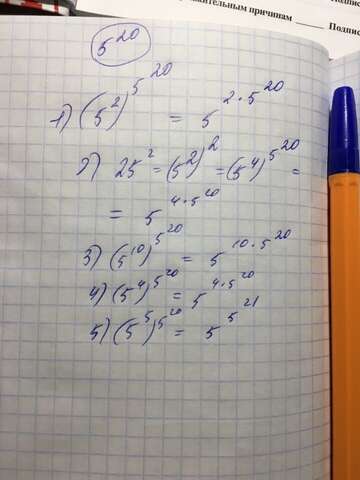 жительным причинам ____ Подпис
Подпис
5²⁰
1) (5²)^5^20 = 5^2·5^20
2) 25² = (5²)² = (5⁴)^5^20 =
= 5^4·5^20
3) (5¹⁰)^5^20 = 5^10·5^20
4) (5⁴)^5^20 = 5^4·5^20
5) (5⁵)^5^20 = 5^5^21